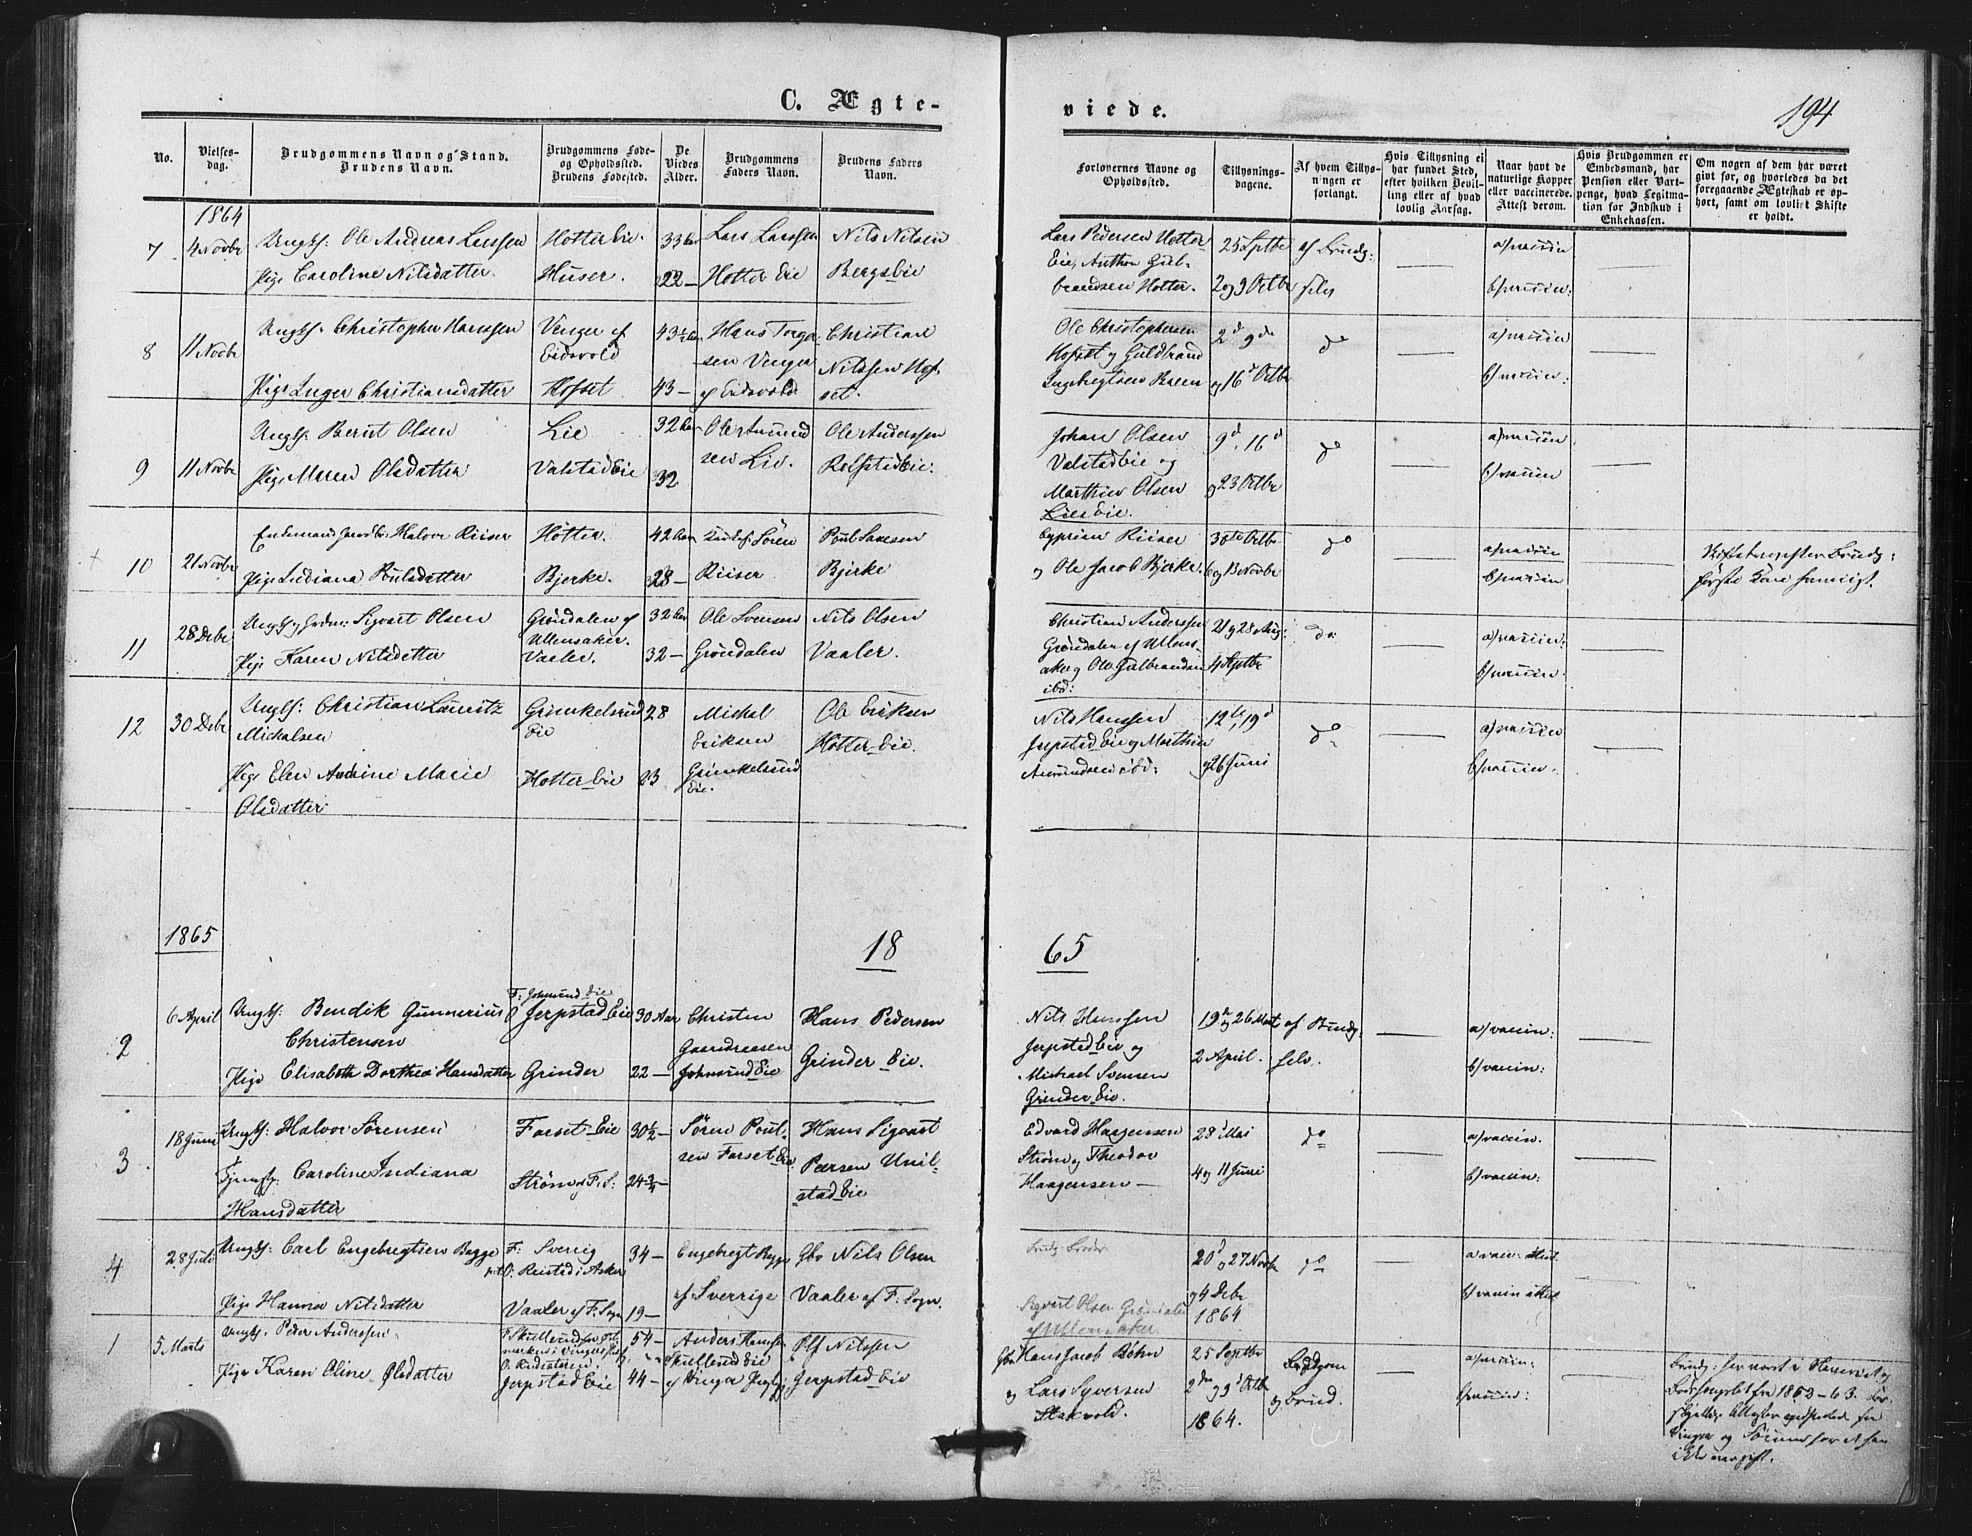 C. Ægte-
viede.
194
No.
Vielses-
dag.
Brudgommens Navn og Stand.
Brudens Navn.
Brudgommens Føde-
og Opholdssted.
Brudens Fødested.
De
Viedes
Alder.
Brudgommens
Faders Navn.
Brudens Faders
Navn.
Forlovernes Navne og
Opholdssted.
Tillysnings-
dagene.
Af hvem Tillys-
ningen er
forlangt.
Hvis Tillysning ei
har fundet Sted,
efter hvilken Bevil-
ling eller af hvad
lovlig Aarsag.
Naar havt de
naturlige Kopper
eller vaccinerede.
Attest derom.
Hvis Brudgommen er
Enbedsmand, har
Pension eller Vart-
penge, hvad Legitima-
tion for Indskud i
Enkekassen.
Om nogen af dem har været
gift før, og hvorledes da det
foregaaende Ægteskab er op-
hørt, samt om lovligt Skifte
er holdt.
1864
7
4 Novbr
Ungk: Ole Andreas Larssen
Pige Caroline Nilsdatter.
Hotter Eie.
Huser.
33 Aar
22 —
Lars Larssen
Hotter Eie
Nils Nilsen
Bergs Eie
Lars Pedersen Hotter
Eie, Anthon Gul-
brandsen Hotter.
25 Septbr
2 og 9 Octbr
af Brudg:
selv
a/ vaccin
b/ vaccin:
8
11 Novbr
Ungk: Christopher Hanssen
Pige Inger Christiansdatter
Venger af
Eidsvold
Hofset
43½ Aar
43 —
Hans Torger
sen Venger
af Eidsvold
Christian
Nilssen Hof-
set.
Ole Christophersen
Hofset og Guldbrand
Ingebregtsen
2d 9de
og 16d Octbr
do
a/ vaccin
b/ vaccin:
9
11 Novbr
Ungk: Bernt Olsen
Pige Maren Olsdatter
Lie
Valstad Eie
32 Aar
32
Ole Amund
sen Lie.
Ole Anderssen
Rolfstad Eie.
Johan Olsen
Valstad Eie og
Marthin Olsen
Lies Eie.
9d, 16d
og 23 Octbr
do
a/ vaccin
b/ vaccin
10
21 Novbr
Enkemand Halvor Riiser
Pige Indiana Poulsdatter
Hotter.
Bjerke.
42 Aar
28 —
Søren
Riiser
Poul Larsen
Bjerke
Cyprian Riiser
og Ole Jacob Bjerke.
30te Octbr
6 og 13 Novbr
do
a/ vaccin
b/ vaccin
Skifte efter Brudg:
første Kone
11
28 Decbr
Ungk: og Sigvart Olsen
Pige Karen Nilsdatter
Grøndalen af
Ullensaker.
Vaaler.
32 Aar
32 —
Ole Svensen
Grøndalen
Nils Olsen
Vaaler.
Christian Anderssen
Grøndalen af Ullens-
aker og Ole Gulbrandsen
ibd:
21 og 28 Aug:
4 Septbr
do:
a/ vaccin:
b/ vaccin:
12
30 Decbr
Ungk: Christian Lauritz
Michalsen
Pige Elen Andrine Marie
Olsdatter
Grinkelsrud
Eie
Hotter Eie
28
23
Michal
Eriksen
Grinkelsrud
Eie.
Ole Eriksen
Hotter Eie.
Nils Hanssen
Jerpstad Eie og Marthin
Amundsen ibd:
12te, 19d
og 26 Juni
do
a/ vaccin
b/ vaccin.
1865
18
65
2
6 April
Ungk: Bendik Gunnerius
Christensen
Pige Elisabeth Dorthea Hansdatter
F. Johnsrud Eie
O Jerpstad Eie
Grinder
30 Aar
22 —
Christen
Gaardraasen
Johnsrud Eie
Hans Pedersen
Grinder Eie.
Nils Hanssen
Jerpstad Eie og
Michael Svensen
Grinder Eie.
19de og 26 Mart
2 April.
af Brudg:
selv.
a/ vaccin:
b/ vaccin:
3
18 Juni
Ungk: Halvor Sørensen
Caroline Indiana
Hansdatter
Farset Eie
Strøm af F. S:
30½ —
24¾ —
Søren Poul-
sen Farset Eie
Hans Sigvart
Peersen Unil-
stad Eie
Edvard Haagensen
Strøm og Theodor
Haagensen —
28d Mai
4 og 11 Juni
do
a/ vaccin.
b/ vaccin:
4
28 Juli
Ungk: Carl Engebregtsen Bagge
Pige Hanna Nilsdatter
F: Sverrig
O: Reistad i Asker
Vaaler af F: Sogn
34 —
19 —
Engebregt Bagge
af Sverrige
Gbr Nils Olsen
Vaaler af F: Sogn.
Sigvart Olsen Grøndalen
af Ullensaker
20d og 27 Novbr
og 4 Decbr
1864
do
a/ vaccin: Attest
b/ vaccin attest
1
5. Marts
Ungk. Peder Anderssen
Pige Karen Oline Olsdatter
Jerpstad Eie
54 —
44 —
Anders Hanssen
Skullerud Eie
af Vinger
Olf Nilssen
Jerpstad Eie
Gbr Hans Jacob Bøhn
og Lars Syversen
Stakvold.
25 Septbr
2den og 9d Octbr
1864.
Brudgom
og Brud.
a/ vaccin:
b/ vaccin:
Brudg: har været i
fra 1853-63.
Vinger og Sørum for at han
ikke var gift.